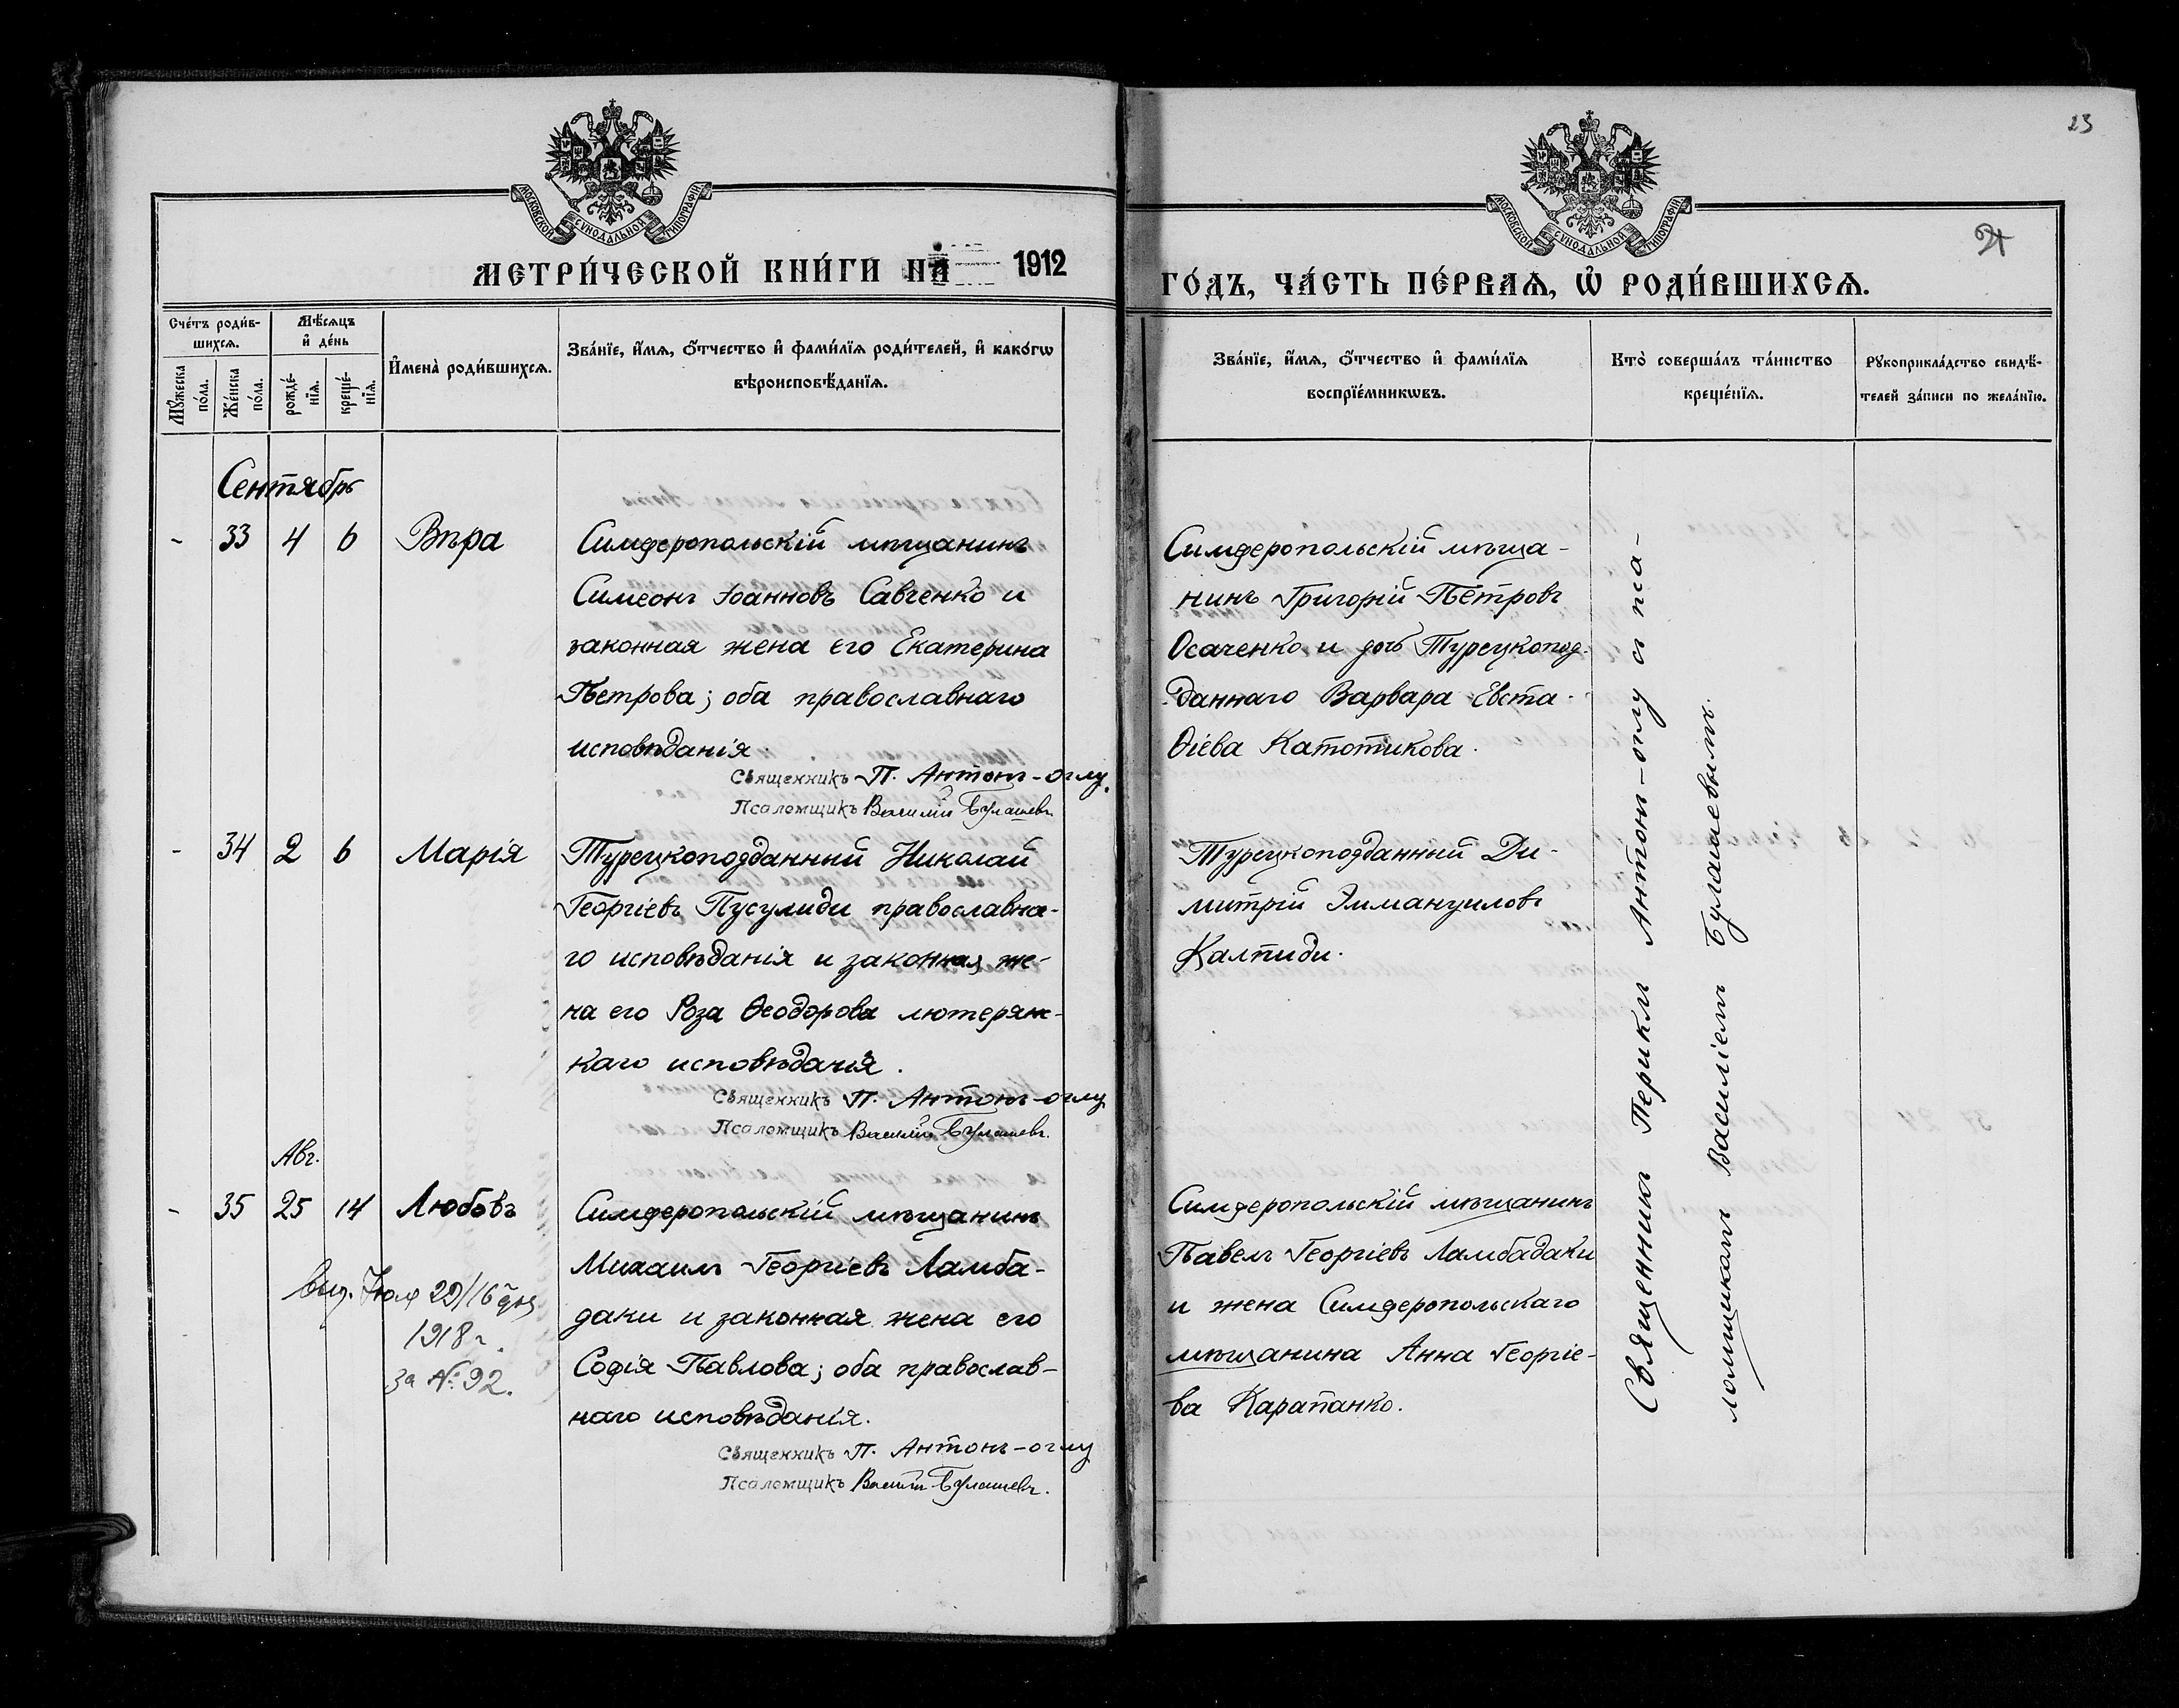 23
21
МОСКОВСКОЙ СѴНОДАЛЬНОЙ ТИПОГРАФІИ
МОСКОВСКОЙ СѴНОДАЛЬНОЙ ТИПОГРАФІИ
МЕТРИ́ЧЕСКОЙ КНИ́ГИ НА̀ 1912
ГО́ДЪ, ЧА́СТЬ ПЕ́РВАѦ, Ѡ҆ РОДИ́ВШИХСѦ.
Сче́тъ роди́в-
шихсѧ.
Мꙋ́жеска по́ла.
Же́нска по́ла.
Мѣ́сѧцъ
и҆ де́нь
рожде́-
нїѧ.
креще́-
нїѧ.
И҆мена̀ роди́вшихсѧ.
Зва́нїе, и҆́мѧ, ѻ҆́тчество и҆ фами́лїѧ роди́телей, и҆ како́гѡ
вѣроисповѣ́данїѧ.
Зва́нїе, и҆́мѧ, ѻ҆́тчество и҆ фами́лїѧ
воспрїе́мникѡвъ.
Кто̀ соверша́лъ та́инство
креще́нїѧ.
Рꙋкоприкла́дство свидѣ́-
телей за́писи по жела́нїю.
Сентябрь
- 33 4 6 Вѣра
Симферопольскій мѣщанинъ
Симеонъ Іоанновъ Савченко и
законная жена его Екатерина
Петрова; оба православнаго
исповѣданія.
Священникъ П. Антонъ-оглу.
Псаломщикъ Василій Булашевъ
Симферопольскій мѣща-
нинъ Григорій Петровъ
Осаченко и дочь Турецкопод-
даннаго Варвара Евста-
ѳіева Катотикова.
- 34 2 6 Марія
Турецкоподданный Николай
Георгіевъ Пусулиди православна-
го исповѣданія и законная же-
на его Роза Ѳеодорова лютеран-
каго исповѣданія.
Священникъ П. Антонъ-оглу
Псаломщикъ Василій Булашевъ.
Турецкоподданный Ди-
митрій Эммануиловъ
Калпиди.
Авг.
- 35 25 14 Любовь
Симферопольскій мѣщанинъ
Михаилъ Георгіевъ Ламба-
даки и законная жена его
Софія Павлова; оба православ-
наго исповѣданія.
Священникъ П. Антонъ-оглу
Псаломщикъ Василій Булашевъ.
выд. Іюля 29/16 дня
1918 г.
за № 92.
Симферопольскій мѣщанинъ
Павелъ Георгіевъ Ламбадаки
и жена Симферопольскаго
мѣщанина Анна Георгіе-
ва Карапанко.
Священникъ Периклъ Антонъ-оглу съ пса-
ломщикомъ Василіемъ Булашевымъ.